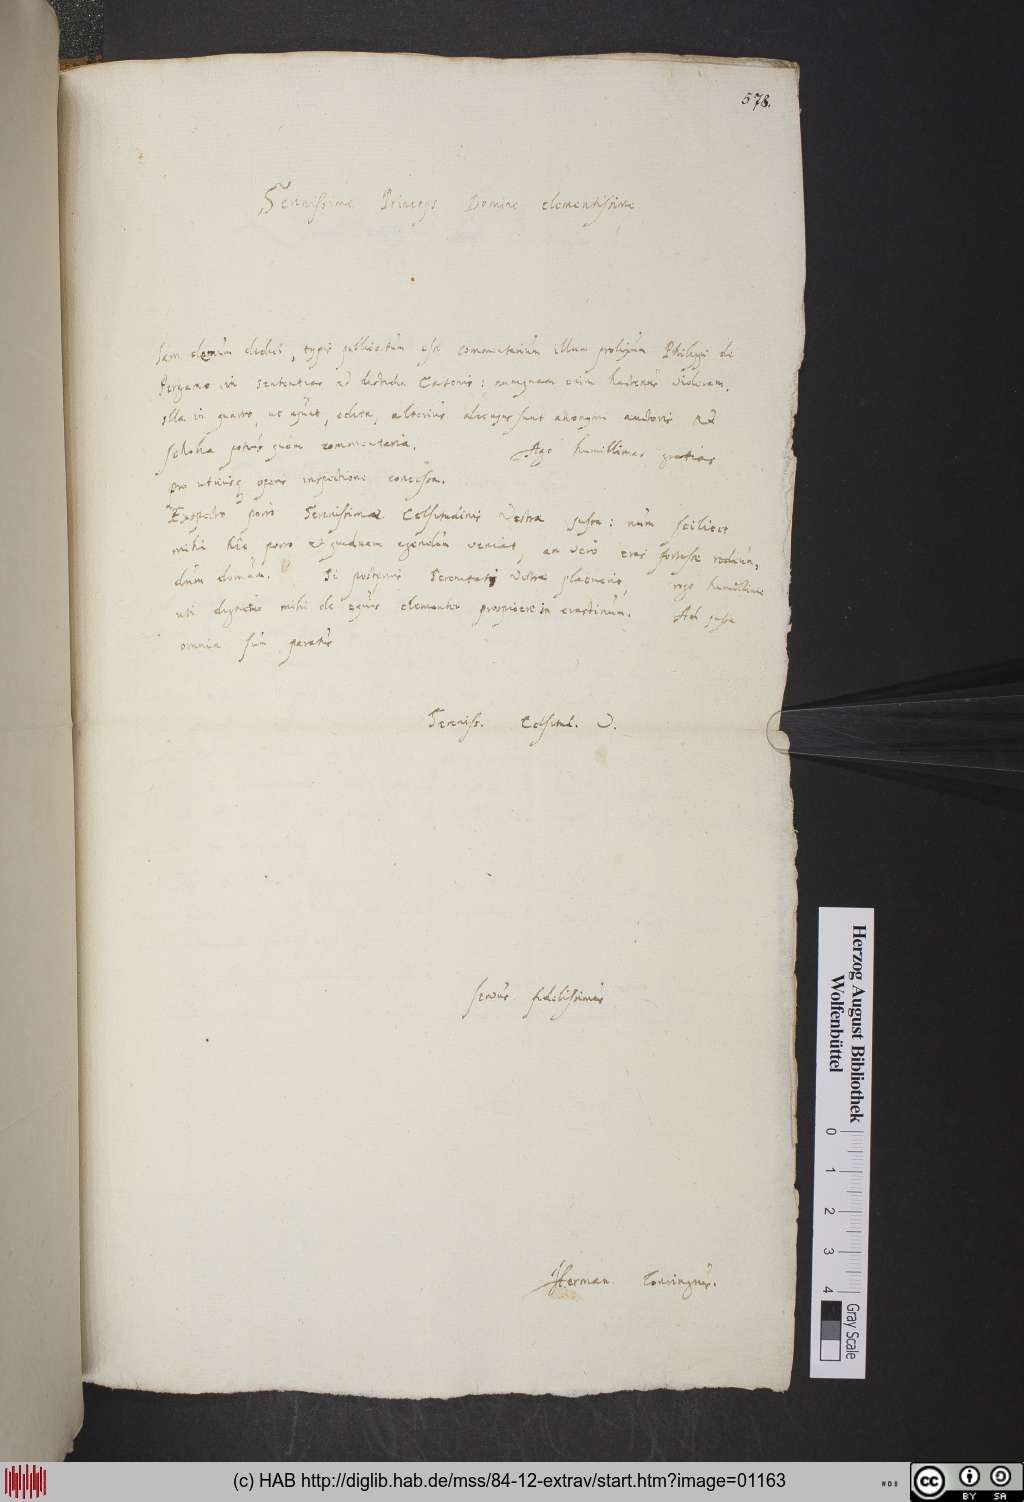 578.
Serenissime Princeps Domine clementissime
Iam demùm didici, typis publicatum esse commentarium illum prolixum Philippi de
Pergamo in sententias disticha Catonis: nunquam enim hactenus videram.
Illa in quarto, ut aiunt, edita, alterius alicujus sunt anonymi auctoris
scholia potiùs quàm commentaria. Ago humillimas gratias
pro utriusq operis inspectione concessa.
Exspecto porrò Serenissimae Celsitudinis Vestrae jussa: num scilicet
mihi hîc porro quidnam agendum veniat, an verò cras fortasse redeun,
dum domum. Si posterius Serenitati Vestrae placuerit, rogo humillime
uti dignetur mihi de equis clementer prospicere in crastinum. Ad jussa
omnia sum paratus
Sereniss. Celsitud. V.
servus fidelissimus
Herman Conringius.
Herzog August Bibliothek
Wolfenbüttel
0 1 2 3 4
Gray Scale
(c) HAB http://diglib.hab.de/mss/84-12-extrav/start.htm?image=01163
cc BY SA